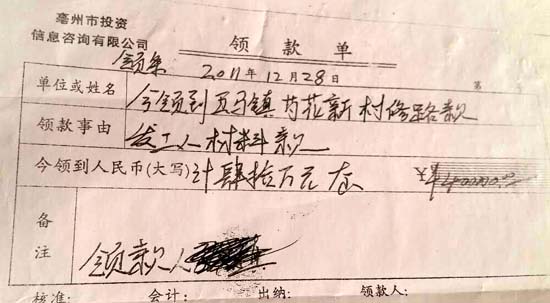 亳州市投资
信息咨询有限公司
领款单
领条 2011年12月28日 第 号
单位或姓名 今领到五马镇芍花新村修路款
领款事由 发工人材料款
今领到人民币(大写)计肆拾万元 ¥400000.00
备注 领款人
核准: 会计: 出纳: 领款人: